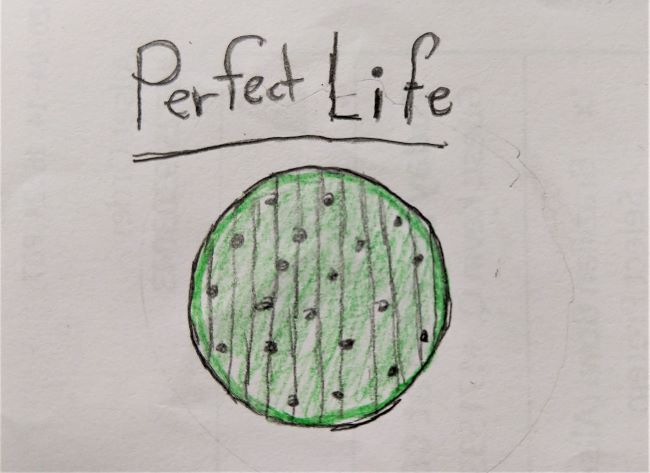 Perfect Life